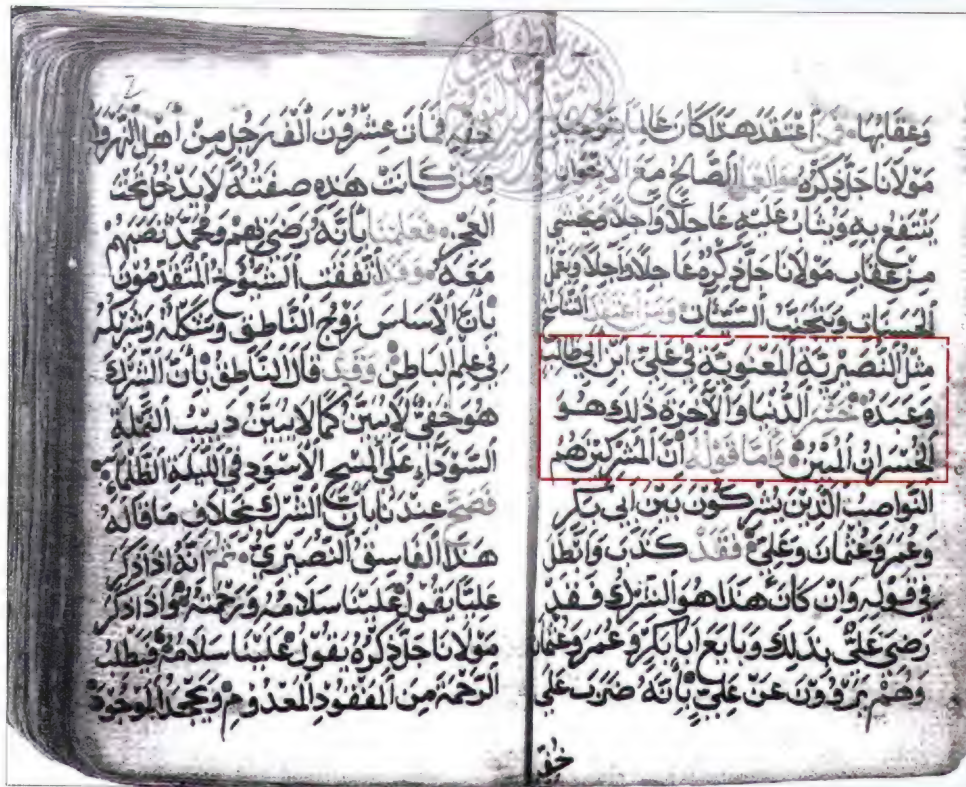 وعقابها فمن اعتقد هذا كان عالمًا بتوحيد
مولانا جل ذكره الصالح مع الاخوان
ينتفع به ويثاب عليه عاجلًا واجلًا وينجى
من عقاب مولانا جل ذكره عاجلًا واجلًا ويعمل
الحسنات ويتجنب السيئات ومن اعتقد التناسخ
مثل النصيرية المعنوية في علي ابن ابي طالب
وعبده خسر الدنيا والاخرة ذلك هو
الخسران المبين واما قوله ان المشركين هم
النواصب الذين يشركون بين ابي بكر
وعمر وعثمان وعلي فقد كذب وابطل
في قوله وان كان هذا هو الشرك فقد
رضى علي بذلك وبايع ابا بكر وعمر وعثمان
وهم يروون عن علي بانه ضرب على
خفه
خفه فبان عشرون الف رجل من اهل النهروان
ومن كانت هذه صفته لا يدخل تحت
العجز فعلمنا بانه رضى بهم ومحمد نصبهم
معه وقد اتفقت الشيوخ المتقدمون
بان الاساس زوج الناطق وشكله وشريكه
في علم الباطن وقد قال الناطق بان الشرك
هو خفي لا يستبين كما لا يستبين دبيب النملة
السوداء على المسح الاسود في الليلة الظلماء
فصح عندنا بان الشرك بخلاف ما قاله
هذا الفاسق النصيري ثم انه اذا ذكر
عليًا يقول علينا سلامه ورحمته واذا ذكر
مولانا جل ذكره يقول علينا سلامه فيطلب
الرحمة من المفقود المعدوم ويجحد الموجود